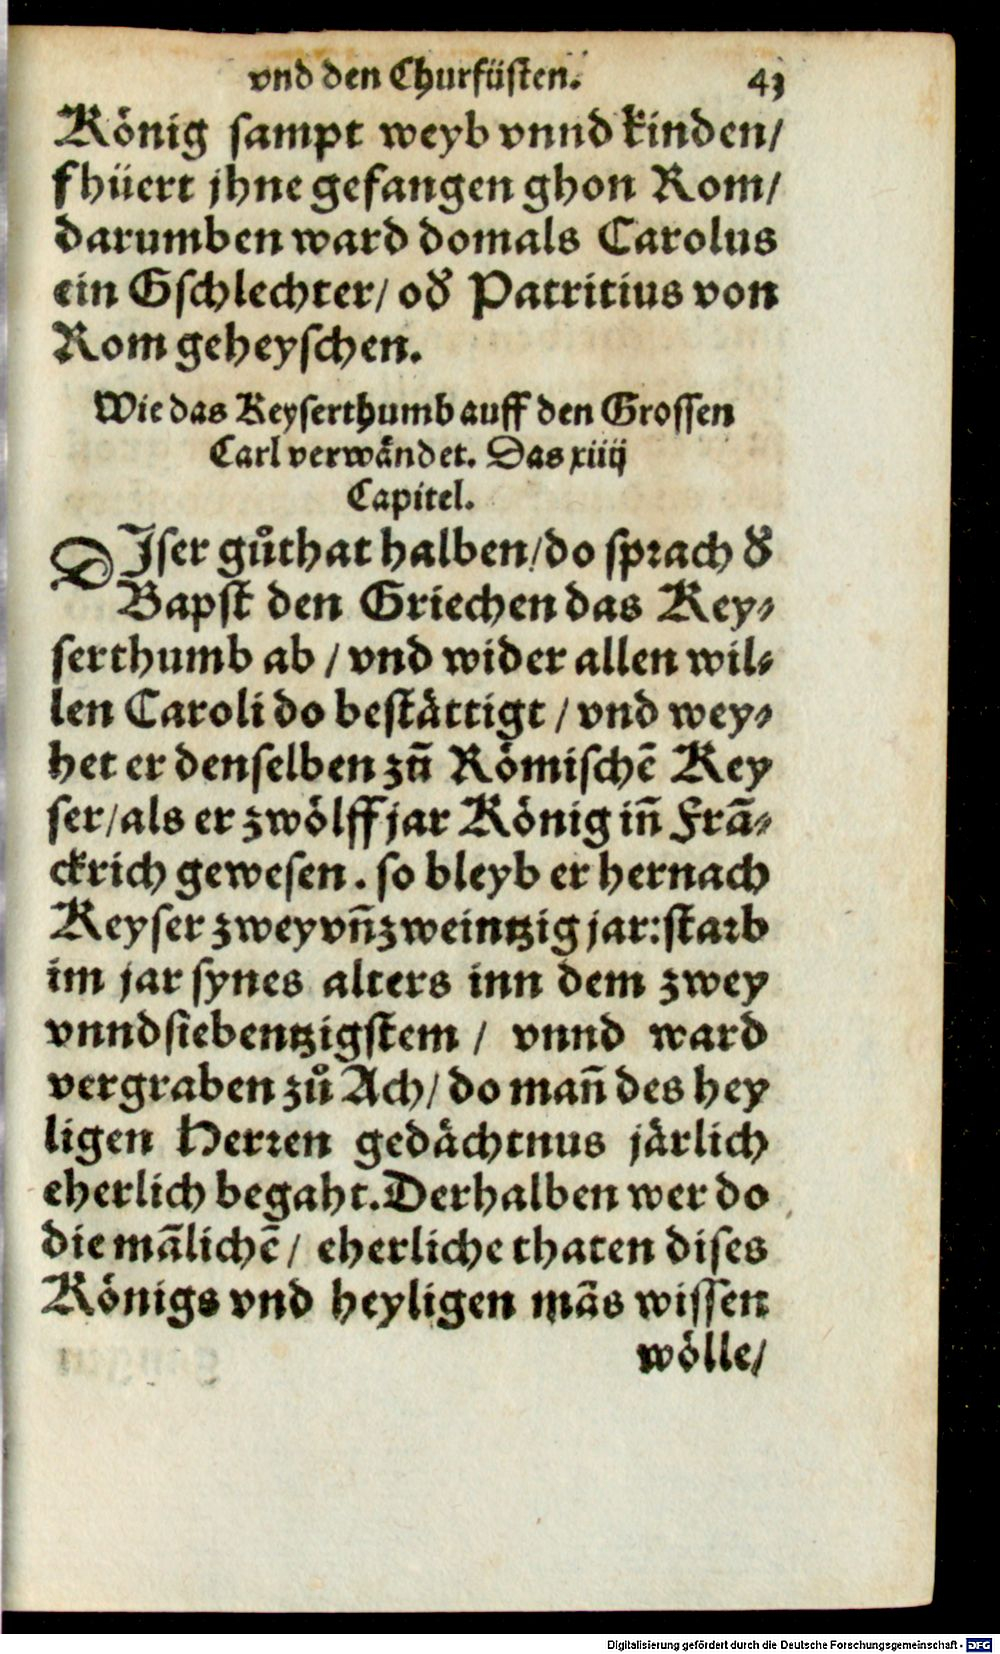 vnd den Churfüsten. 43
König sampt weyb vnnd kinden/
fhüert jhne gefangen ghon Rom/
darumben ward domals Carolus
ein Gschlechter/ oď Patritius von
Rom geheyschen.
Wie das Keyserthumb auff den Grossen
Carl verwändet. Das xiiij
Capitel.
DIser gůthat halben/do sprach ď
Bapst den Griechen das Key-
serthumb ab / vnd wider allen wil-
len Caroli do bestättigt / vnd wey-
het er denselben zů Römischē Key
ser/als er zwölff jar König iñ Frā-
ckrich gewesen. so bleyb er hernach
Keyser zweyvñzweintzig jar: starb
im jar synes alters inn dem zwey
vnndsiebentzigstem / vnnd ward
vergraben zů Ach/ do mañ des hey
ligen Herren gedächtnus järlich
eherlich begaht. Derhalben wer do
die mālichē/ eherliche thaten dises
Königs vnd heyligen mās wissen
wölle/
Digitalisierung gefördert durch die Deutsche Forschungsgemeinschaft - DFG